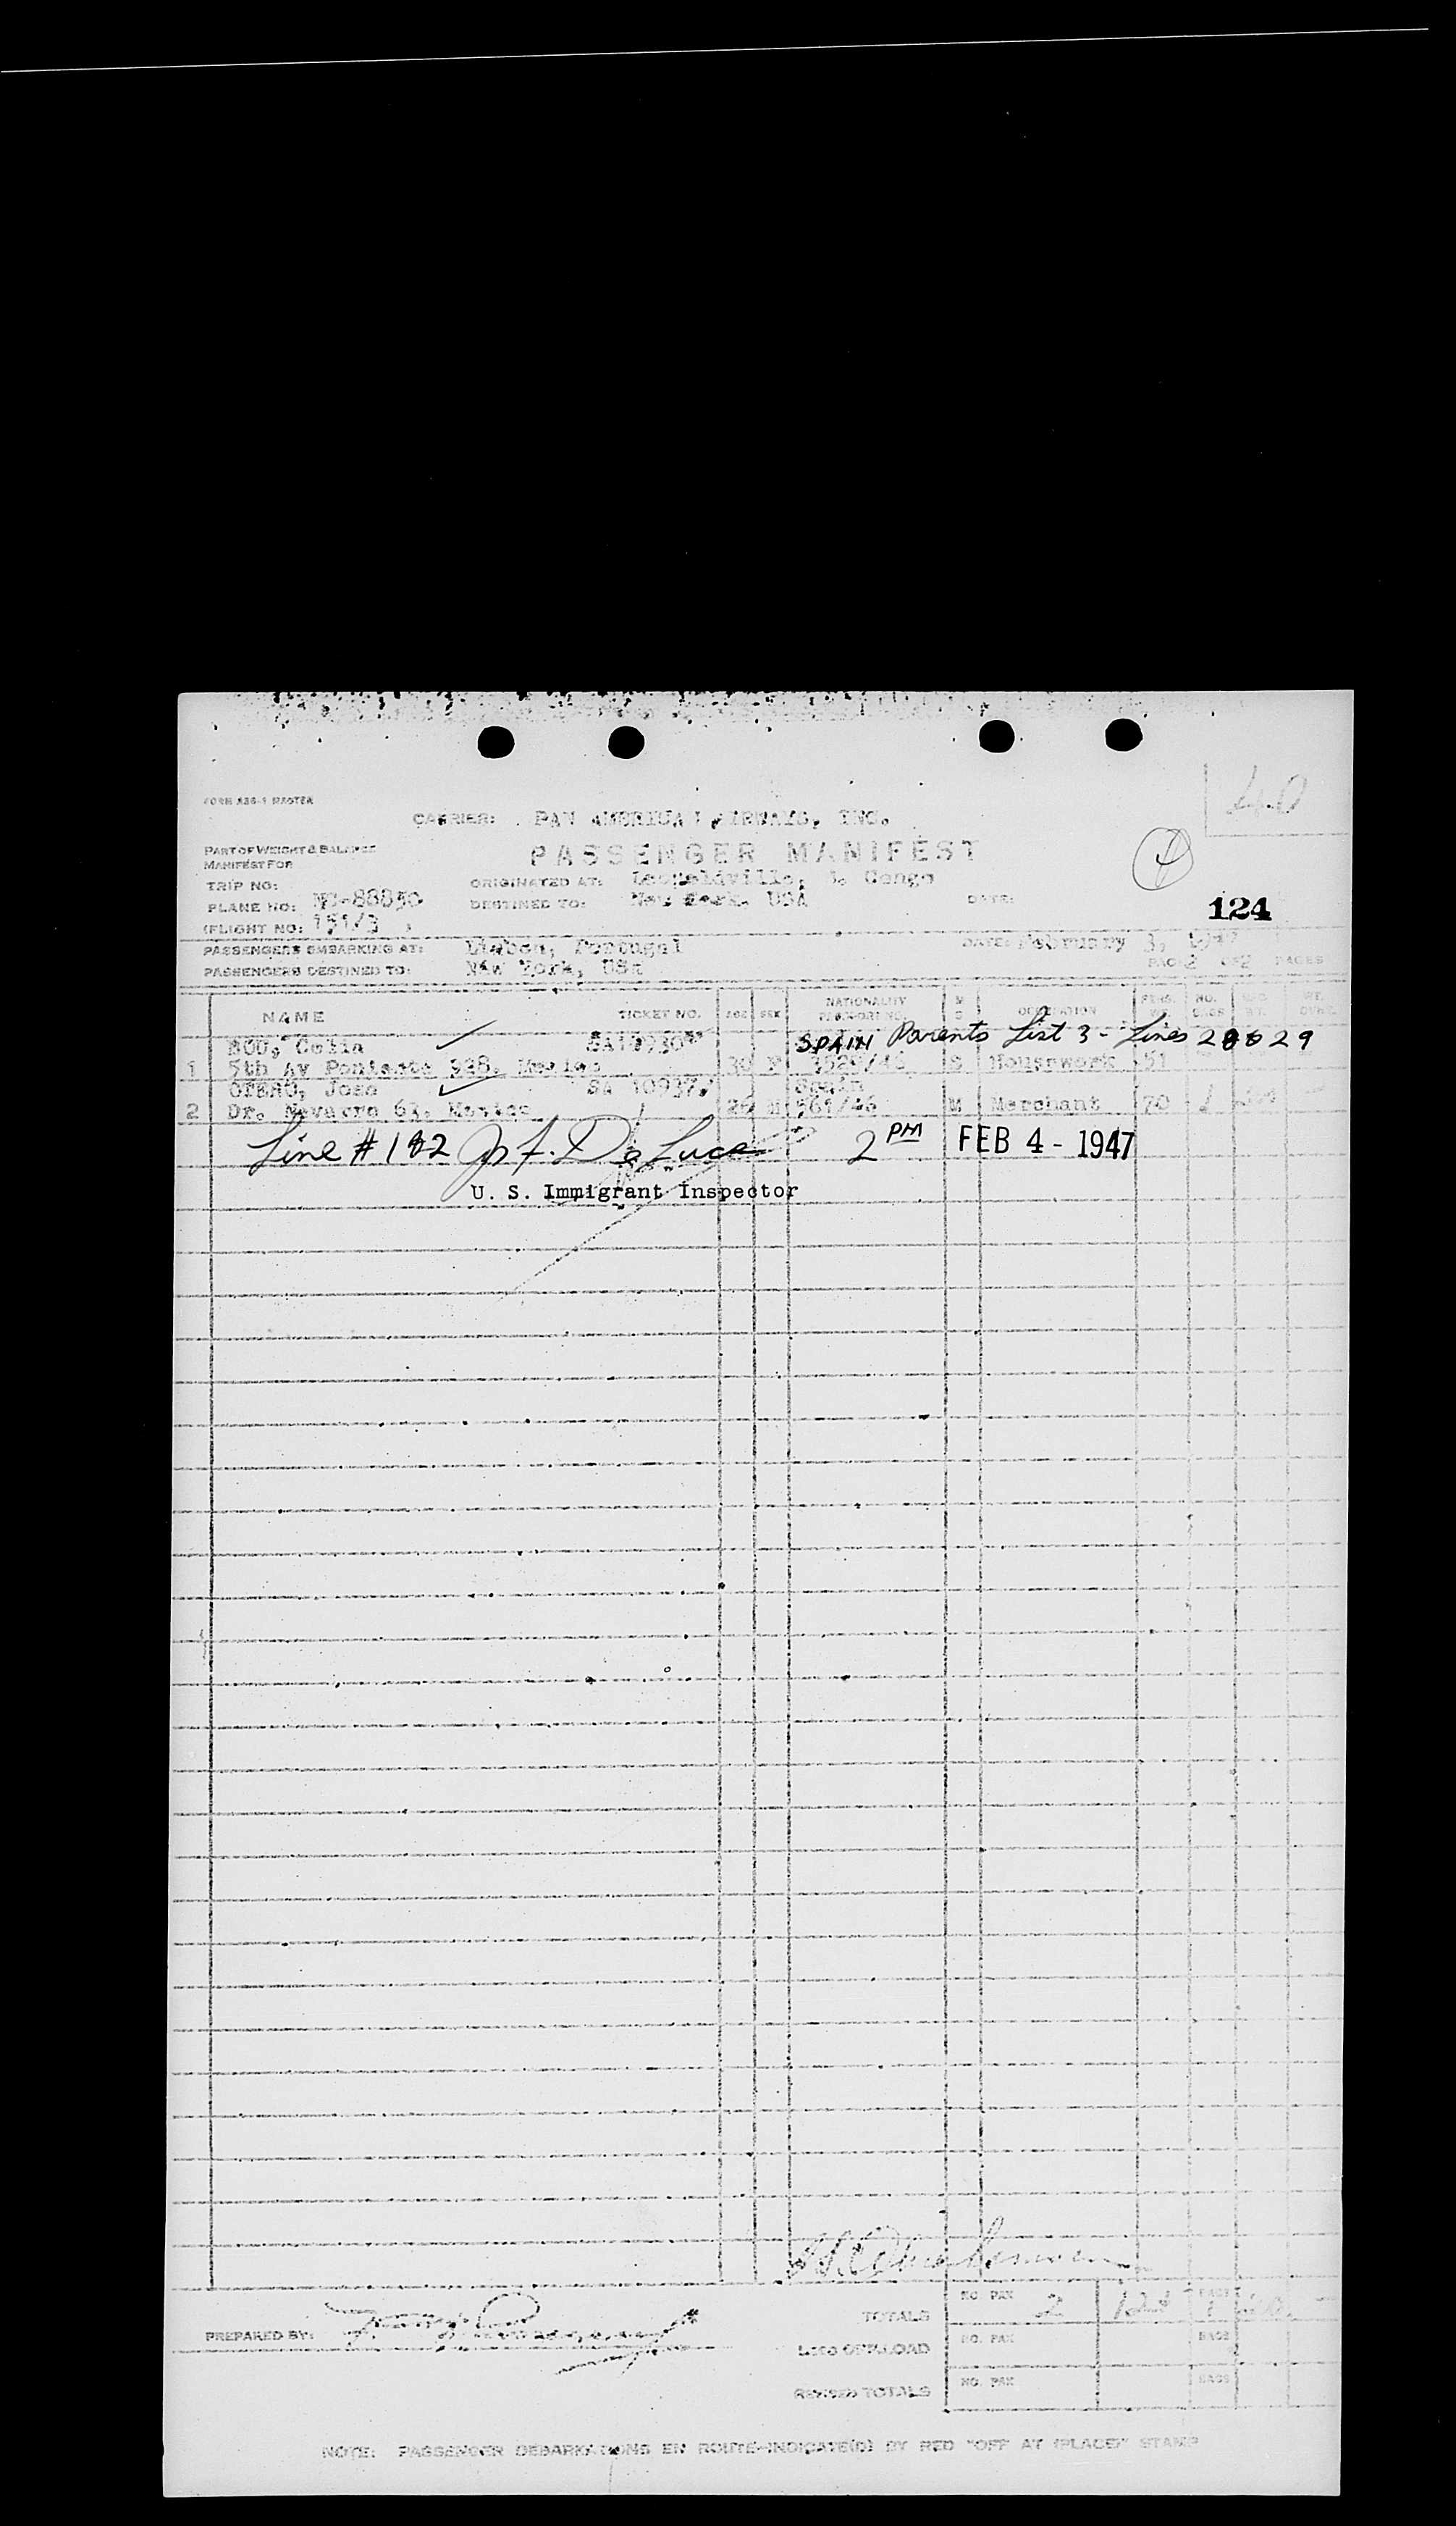 FORM
CARRIER: PAN AMERICAN AIRWAYS, INC.
40
PART OF WEIGHT & BALANCE
MANIFEST FOR
PASSENGER MANIFEST
TRIP NO:
ORIGINATED AT: Leopoldville, B. Congo
PLANE NO: NC-88850
DESTINED TO: New York, USA
DATE:
124
(FLIGHT NO: 151/3 )
PASSENGERS EMBARKING AT: Lisbon, Portugal
DATE: February 3, 1947
PASSENGERS DESTINED TO: New York, USA
PAGE 2 OF 2 PAGES
NAME TICKET NO. AGE SEX NATIONALITY PASSPORT NO. M S OCCUPATION PERS. WT. NO. BAGS WT.
Celia SPAIN Parents List 3 - Lines 28 & 29
1 5th Av Poniente 928, Mexico 30 F S Housework 51
OTERO, Jose SA 10937 Spain
2 Dr. Navarro 63, Mexico 26 M 561/46 M Merchant 70 1
Line # 1 & 2 De Luca 2 PM FEB 4 - 1947
U. S. Immigrant Inspector
TOTALS NO. PAX 2 BAGS 1
PREPARED BY:
LESS OFFLOAD NO. PAX BAGS
REVISED TOTALS NO. PAX BAGS
NOTE: PASSENGER DEBARKATIONS EN ROUTE-INDICATE(D) BY RED "OFF AT (PLACE)" STAMP